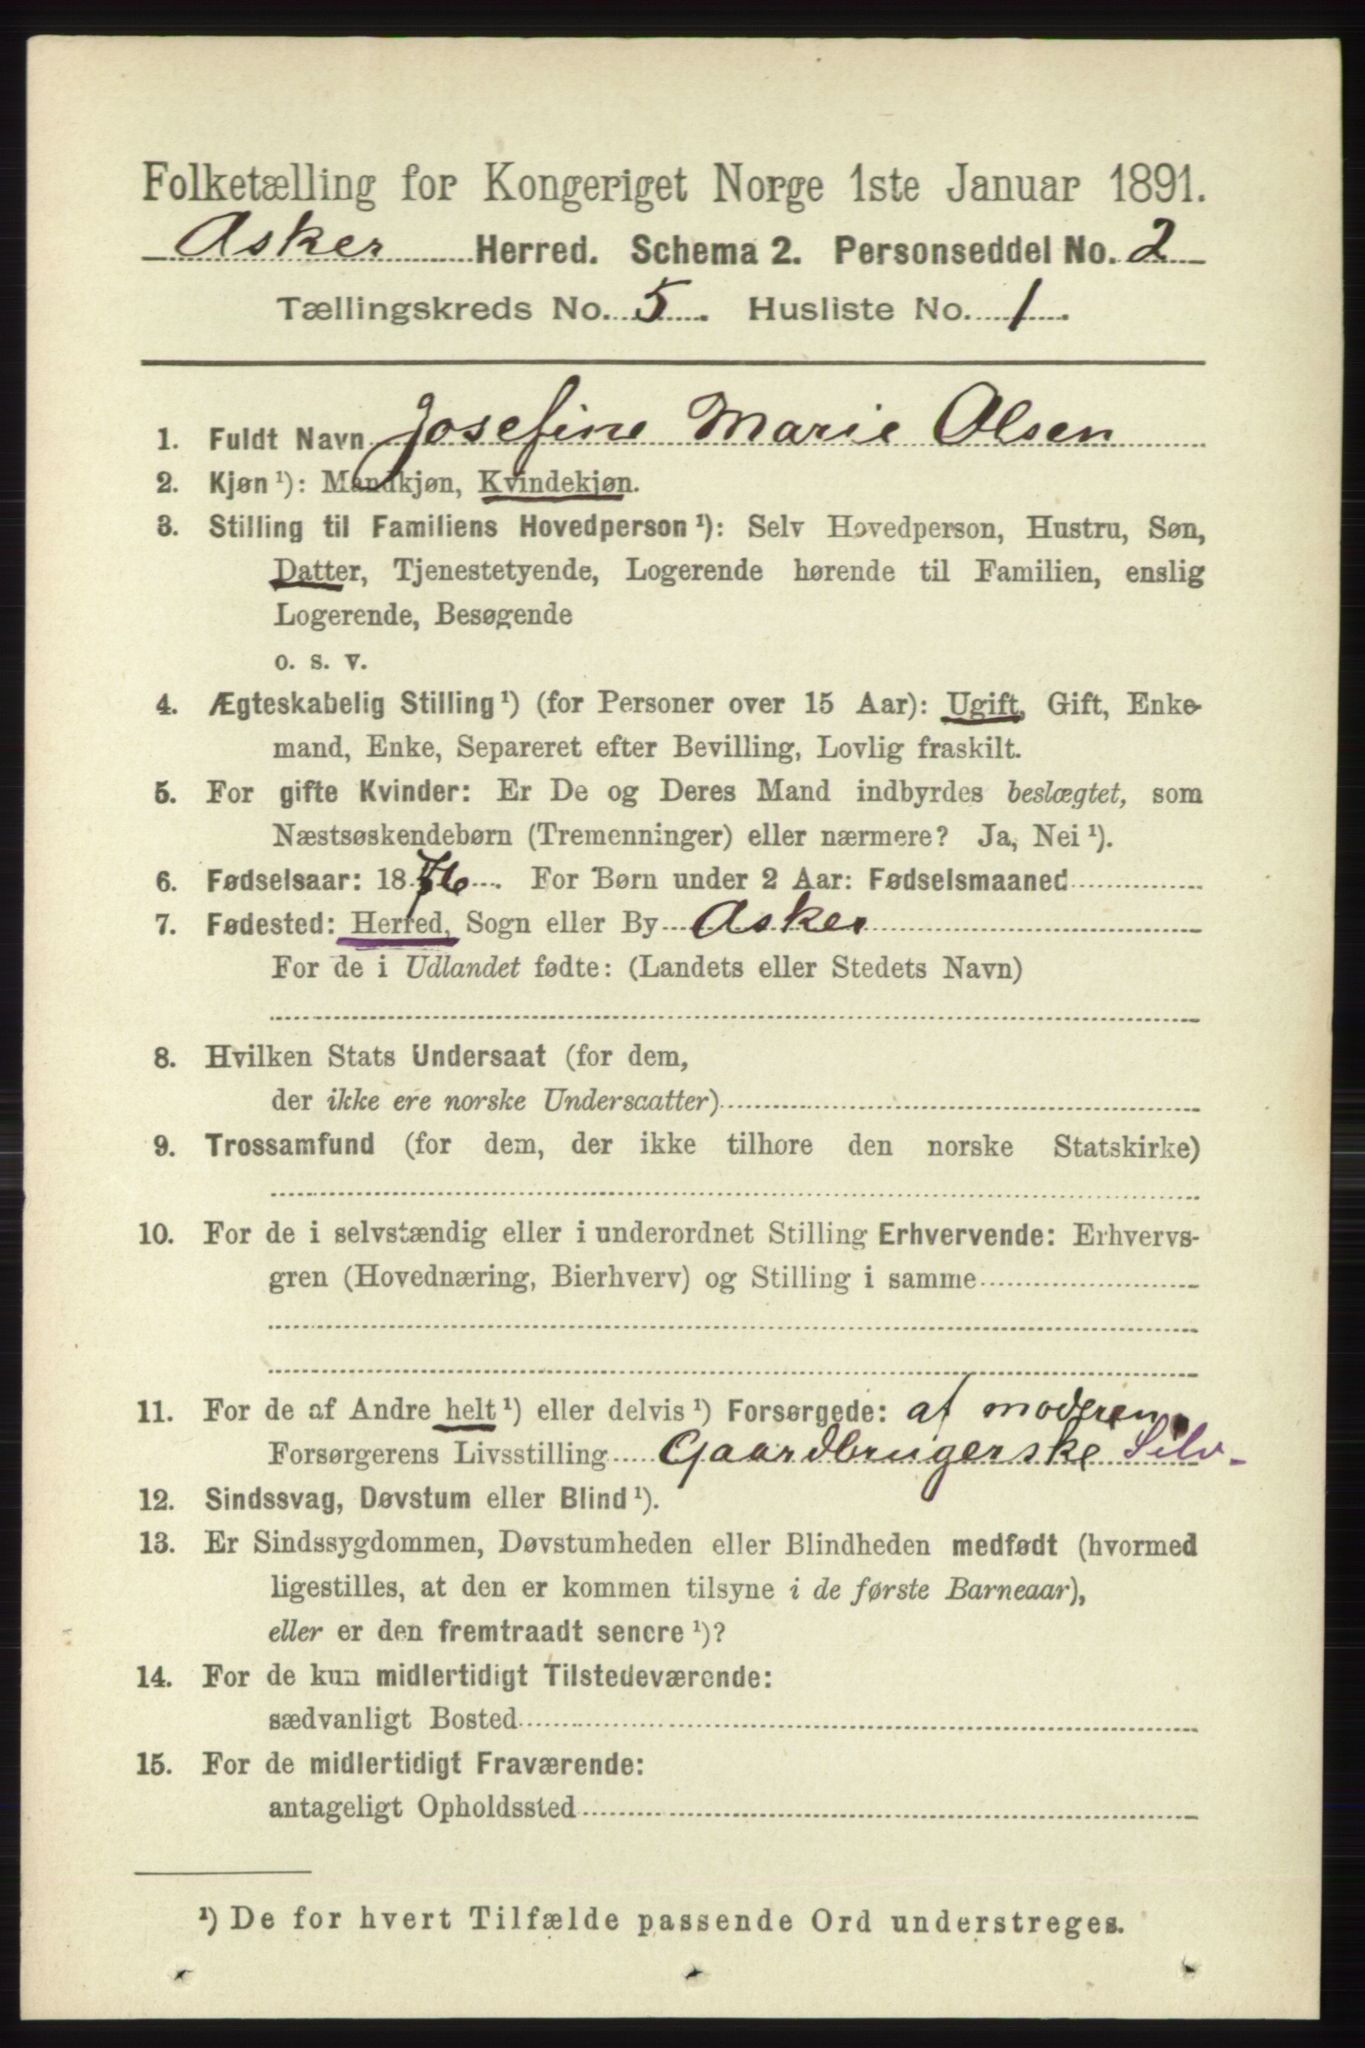 Folketælling for Kongeriget Norge 1ste Januar 1891.
Asker Herred. Schema 2. Personseddel No. 2
Tællingskreds No. 5. Husliste No. 1.
1. Fuldt Navn Josefine Marie Olsen
2. Kjøn ¹): Mandkjøn, Kvindekjøn.
3. Stilling til Familiens Hovedperson ¹): Selv Hovedperson, Hustru, Søn,
Datter, Tjenestetyende, Logerende hørende til Familien, enslig
Logerende, Besøgende
o. s. v.
4. Ægteskabelig Stilling ¹) (for Personer over 15 Aar): Ugift, Gift, Enke-
mand, Enke, Separeret efter Bevilling, Lovlig fraskilt.
5. For gifte Kvinder: Er De og Deres Mand indbyrdes beslægtet, som
Næstsøskendebørn (Tremenninger) eller nærmere? Ja, Nei ¹).
6. Fødselsaar: 1876. For Børn under 2 Aar: Fødselsmaaned
7. Fødested: Herred, Sogn eller By Asker
For de i Udlandet fødte: (Landets eller Stedets Navn)
8. Hvilken Stats Undersaat (for dem,
der ikke ere norske Undersaatter)
9. Trossamfund (for dem, der ikke tilhore den norske Statskirke)
10. For de i selvstændig eller i underordnet Stilling Erhvervende: Erhvervs-
gren (Hovednæring, Bierhverv) og Stilling i samme
11. For de af Andre helt ¹) eller delvis ¹) Forsørgede: af moderen.
Forsørgerens Livsstilling Gaardbrugerske Selv-
12. Sindssvag, Døvstum eller Blind ¹).
13. Er Sindssygdommen, Døvstumheden eller Blindheden medfødt (hvormed
ligestilles, at den er kommen tilsyne i de første Barneaar),
eller er den fremtraadt senere ¹)?
14. For de kun midlertidigt Tilstedeværende:
sædvanligt Bosted
15. For de midlertidigt Fraværende:
antageligt Opholdssted
¹) De for hvert Tilfælde passende Ord understreges.